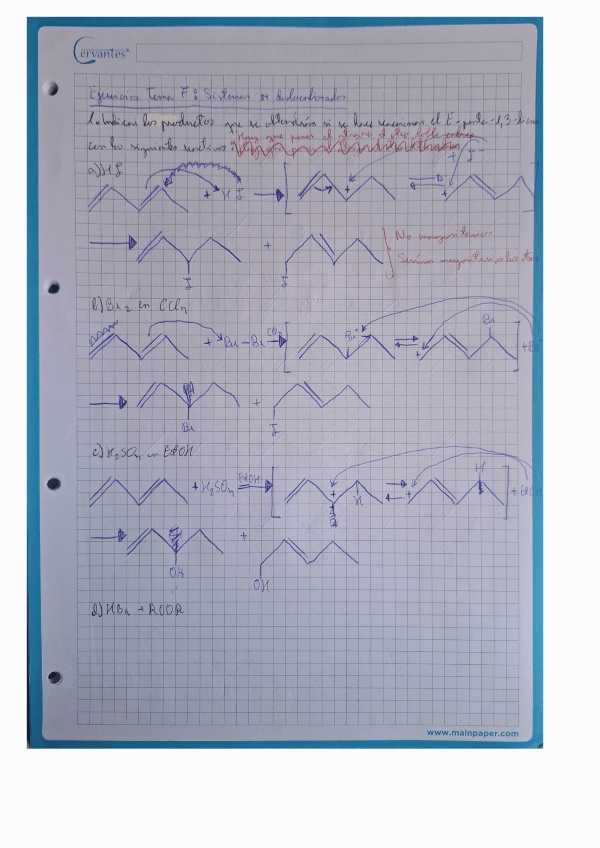 Cervantes
Ejercicios Tema F: Sistemas deslocalizados
1. Indicar los productos que se obtendrán si se hace reaccionar el E-penta-1,3-dieno
con los siguientes reactivos: Hay que poner el doble enlace
a) HI
+ HI
+
+
+ I-
+
I
I
No mayoritarios
Serían mayoritarios los trans
b) Br2 en CCl4
+ Br-Br
Br
+
Br
+ Br
+
Br
I
c) H2SO4 en EtOH
+ H2SO4
EtOH
+
H
+
H
+ EtOH
+
OH
OH
d) HBr + ROOR
www.mainpaper.com